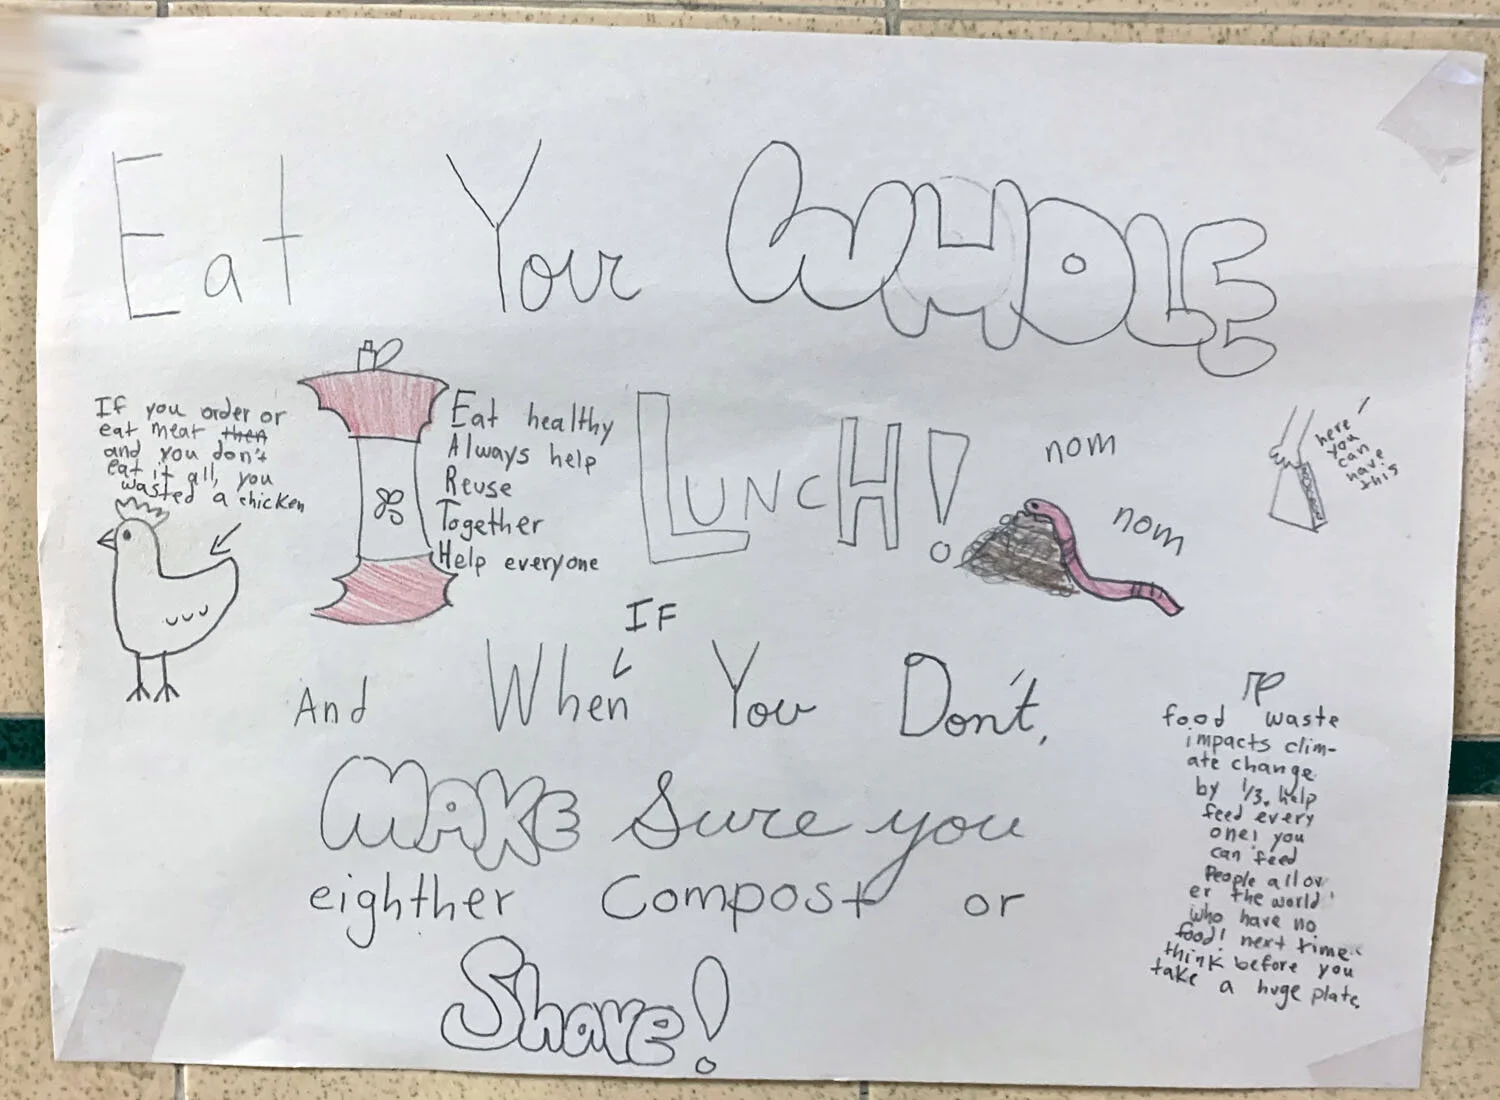 Eat Your WHOLE
LUNCH!
If you order or
eat meat then
and you don't
eat it all, you
wasted a chicken
Eat healthy
Always help
Reuse
Together
Help everyone
nom
nom
here
you
can
have
this
IF
And When You Don't,
MAKE Sure you
eighther Compost or
Share!
food waste
impacts clim-
ate change
by 1/3. help
feed every
one! you
can feed
People all ov
er the world
who have no
food! next time
think before you
take a huge plate.